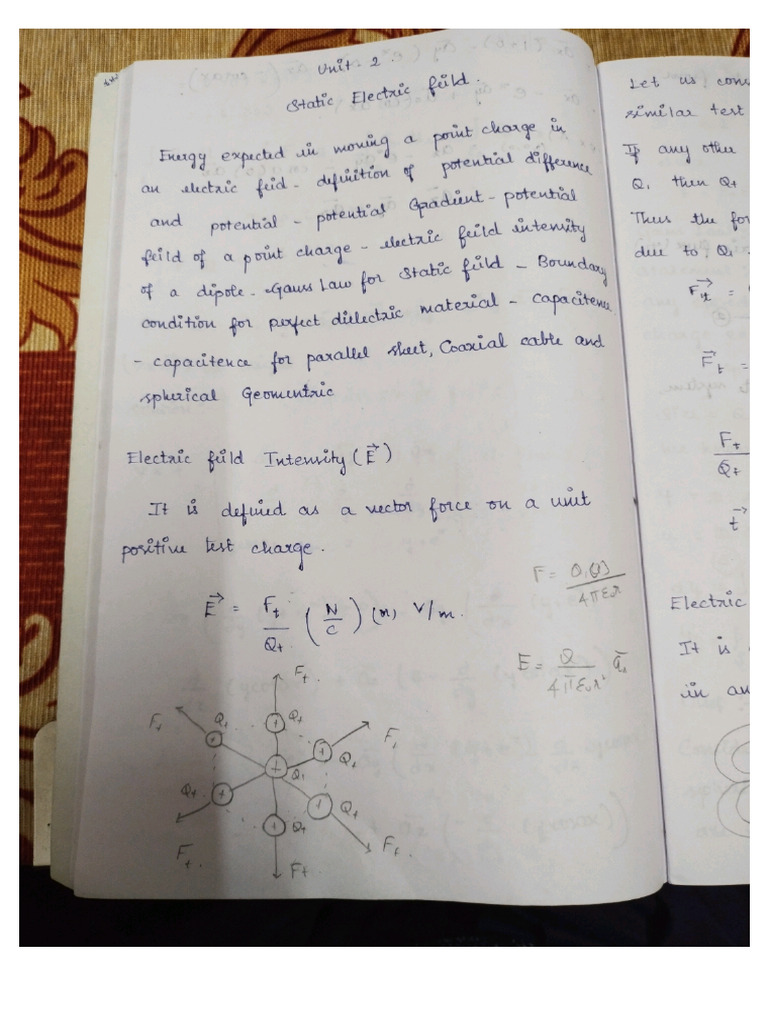 Unit - 2.
Static Electric feild.
Energy expected in moving a point charge in
an electric feid - definition of potential difference
and potential - potential Gradient - potential
feild of a point charge - electric feild intensity
of a dipole - Gauss Law for Static feild - Boundary
condition for perfect dielectric material - capacitence
- capacitence for parallel sheet, Coaxial cable and
spherical Geomentric
Electric feild Intensity (E→)
It is defined as a vector force on a unit
positive test charge.
E→ = Ft/Qt (N/C) (or) V/m.
F = Q1Q2/4πεr
E = Q/4πε0r² ār
Ft.
Ft Qt Qt Ft
Qt
Q1
Qt Qt
Qt Ft.
Ft.
Ft
Let us cons
similar test
If any other
Q1 then Qt
Thus the for
due to Q1
F→t =
F→t =
Ft
Qt
Electric
It is
in an